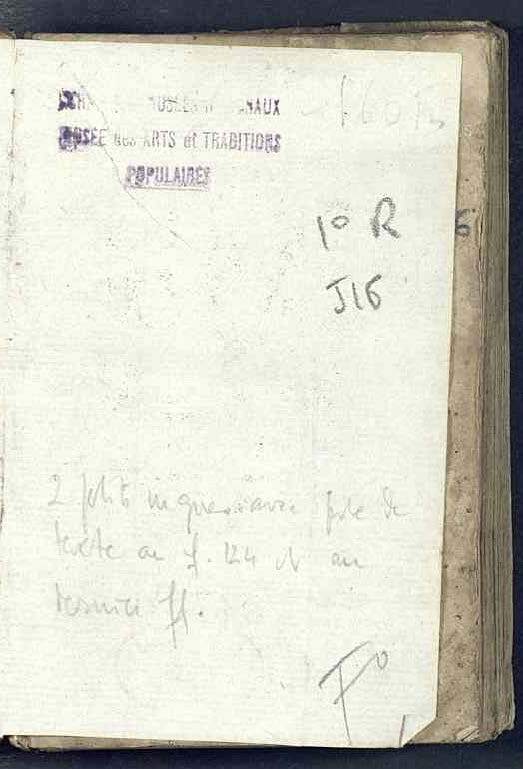 MUSÉE des ARTS et TRADITIONS
POPULAIRES
1º R
J16
6
2 petits manques avec perte de
texte au f. 124 et au
dernier ff.
Fº